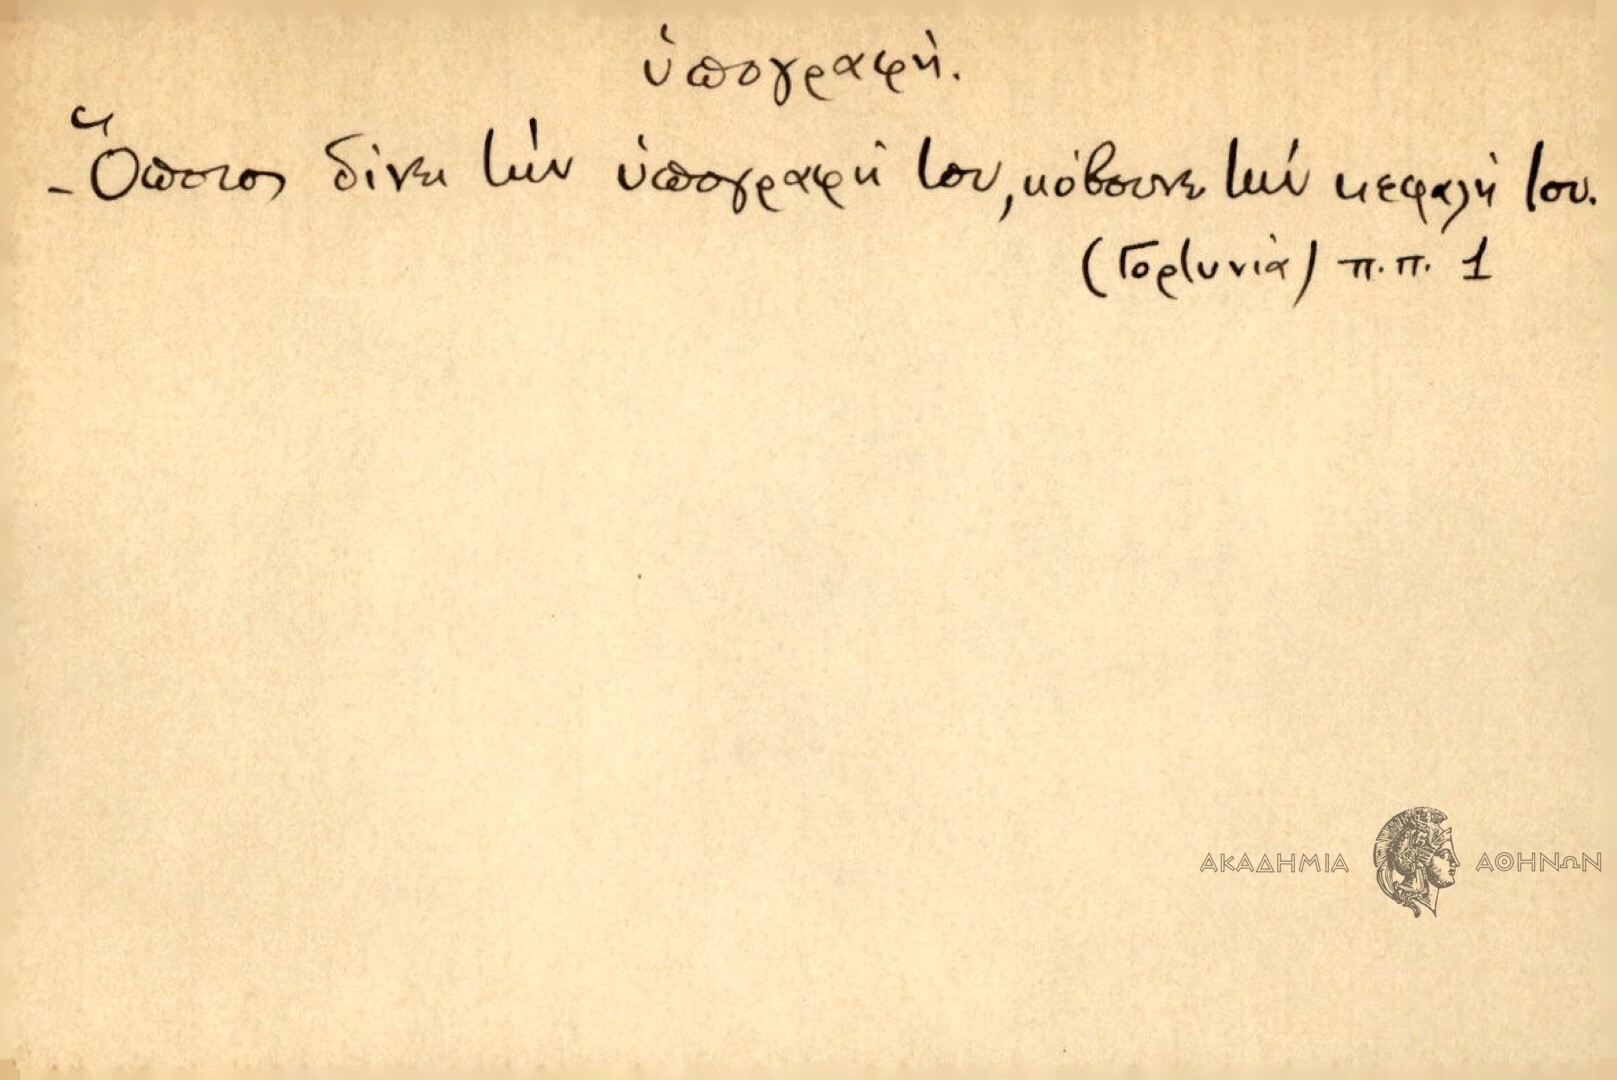 ὑπογραφή.
- Ὅποιος δίνει τήν ὑπογραφή του, κόβουνε τήν κεφαλή του.
(Γορτυνία) π.π. 1
ΑΚΑΔΗΜΙΑ ΑΘΗΝΩΝ